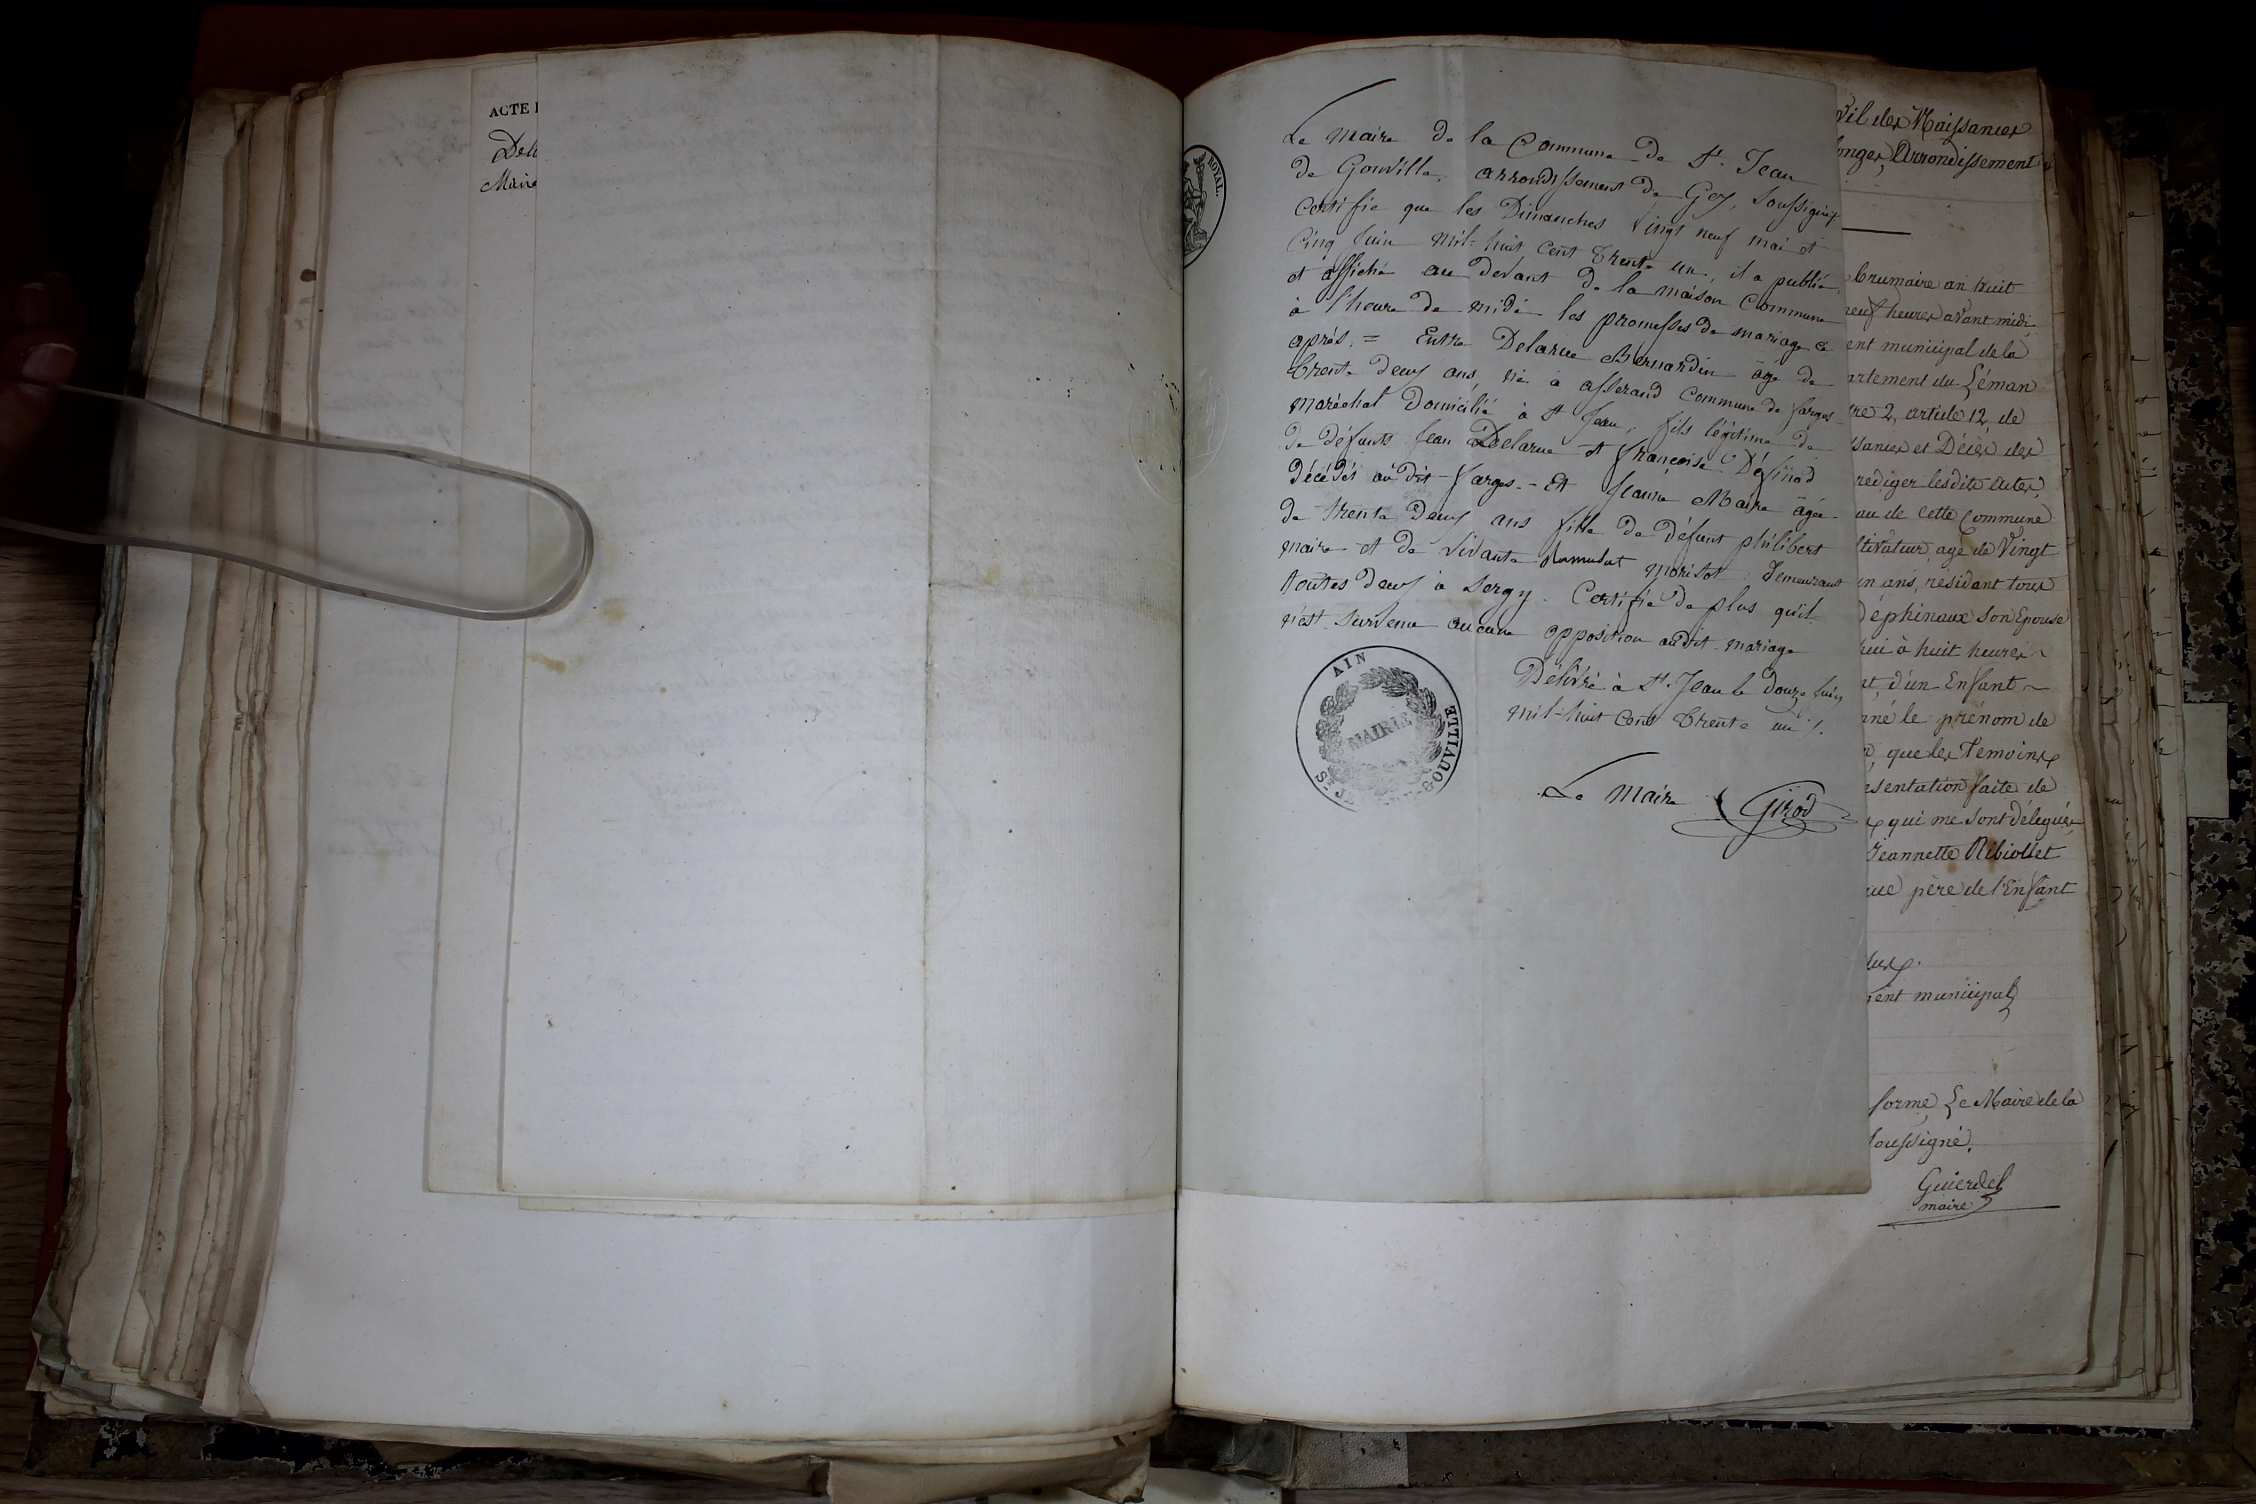 ACTE
Dela
Maire
ROYAL.
Le maire de la Commune de St. Jean
de Gonville, arrondissement de Gex, Soussigné
Certifie que les Dimanches vingt neuf mai et
Cinq Juin mil-huit Cent trente un, il a publié
et affiché au devant de la maison Commune
à l'heure de midi les promesses de mariage ci
après. = Entre Delarue Bernardin âgé de
trente deux ans, né à asserand Commune de farges
maréchal Domicilié à St Jean, fils légitime de
de défunts Jean Delarue et françoise
Décédés au dit farges. - Et Jeanne Maire âgée
de trente deux ans fille de défunt philibert
maire et de vivante morisot Demeurant
toutes deux à Sergy. Certifie de plus qu'il
n'est survenu aucune opposition audit mariage
Délivré à St. Jean le douze Juin
mil-huit cent trente un /.
AIN
MAIRIE
GOUVILLE
Le maire Girod
vil des Naissances
onges, Arrondissement
brumaire an huit
neuf heures avant midi,
ent municipal de la
artement du Léman
tre 2, article 12, de
ssances et Décès des
rediger lesdits actes,
au de cette Commune
ltivateur, agé de Vingt
un ans, residant tous
Déphinaux son Epouse
hui à huit heures
nt, d'un Enfant
nné le prénom de
que les Témoins
esentation faite de
qui me sont délégués
Jeannette Ribiollet
rue père de l'Enfant
ent municipal
forme, Le Maire de la
soussigné.
maire